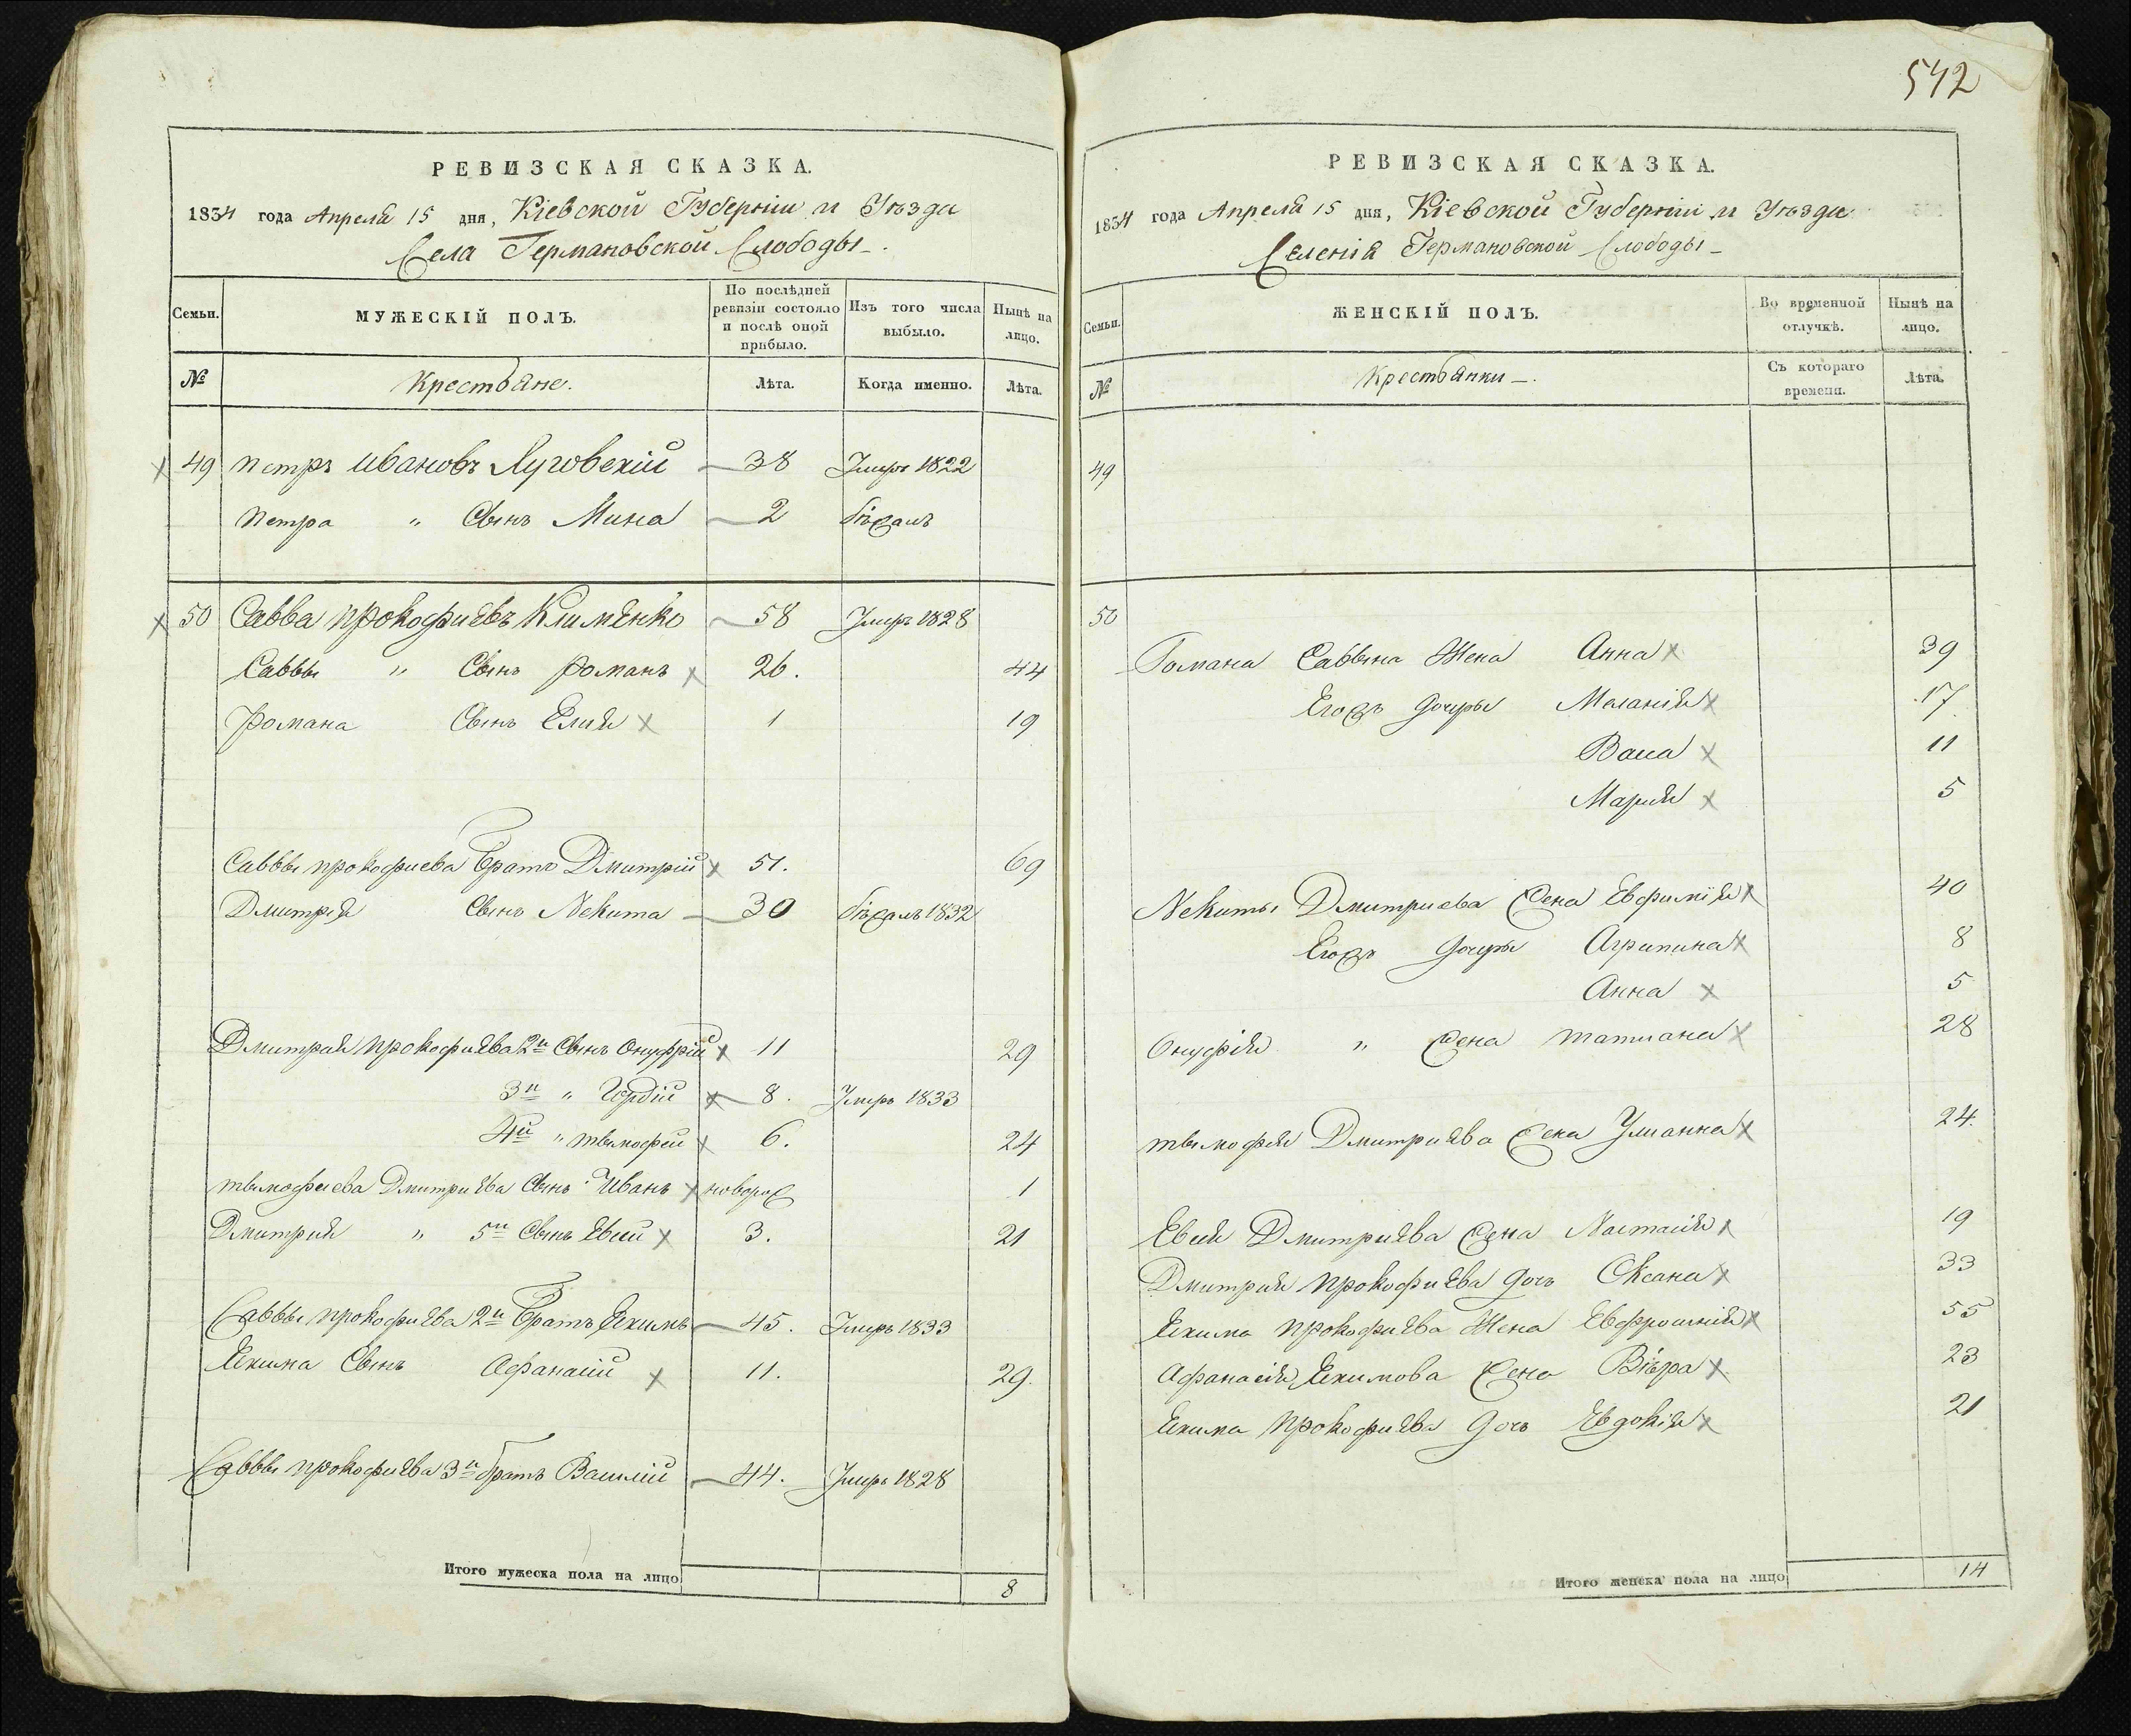 542
РЕВИЗСКАЯ СКАЗКА.
1834 года Апреля 15 дня, Кіевской Губерніи и Уѣзда
Села Германовской Слободы
Семьи. МУЖЕСКІЙ ПОЛЪ. По послѣдней ревизіи состояло и послѣ оной прибыло. Изъ того числа выбыло. Нынѣ на лицо.
№ Крестьяне. Лѣта. Когда именно. Лѣта.
49 Петръ Ивановъ Луговскій 38 Умеръ 1822
Петра " Сынъ Мина 2 бѣжалъ
50 Савва Прокофиевъ Клименко 58 Умеръ 1828
Саввы " Сынъ Романъ 26. 44
Романа Сынъ Елия 1 19
Саввы Прокофиева Братъ Дмитрій 51. 69
Дмитрія Сынъ Некита 30 бѣжалъ 1832
Дмитрия Прокофиева 2й Сынъ Онуфрій 11 29
3й " Гордій 8. Умеръ 1833
4й " Тымофей 6. 24
Тымофеева Дмитриева Сынъ Иванъ новорож 1
Дмитрия " 5й Сынъ Евсій 3. 21
Саввы Прокофиева 2й Братъ Екимъ 45. Умеръ 1833
Екима Сынъ Афанасій 11. 29.
Саввы Прокофиева 3й братъ Василій 44. Умеръ 1828
Итого мужеска пола на лицо 8
РЕВИЗСКАЯ СКАЗКА.
1834 года Апреля 15 дня, Кіевской Губерніи и Уѣзда
Селенія Германовской Слободы
Семьи. ЖЕНСКІЙ ПОЛЪ. Во временной отлучкѣ. Нынѣ на лицо.
№ Крестьянки Съ котораго времени. Лѣта.
49
50
Романа Саввина Жена Анна 39
Егожъ дочеры Меланія 17
Васа 11
Мария 5
Некиты Дмитриева Жена Евфимія 40
Егожъ дочеры Агрипина 8
Анна 5
Онуфрія " Жена Татиана 28
Тымофея Дмитриева Жена Улианна 24.
Евсія Дмитриева Жена Настасія 19
Дмитрия Прокофиева дочь Оксана 33
Екима Прокофиева Жена Евфросинія 55
Афанасія Екимова Жена Вѣра 23
Екима Прокофиева дочь Евдокія 21
Итого женска пола на лицо 14